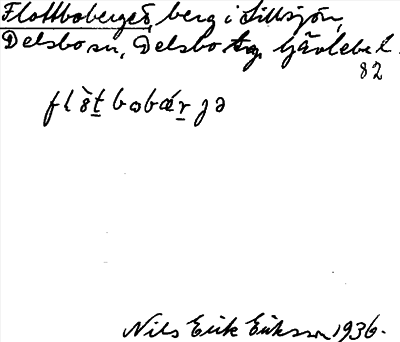 Flottboberget, berg i Lillsjön,
Delsbo sn, Delsbo tg. Gävlebo l.
82
flòt̲ bobáɽ̲ jə
Nils Erik Eriksson 1936.